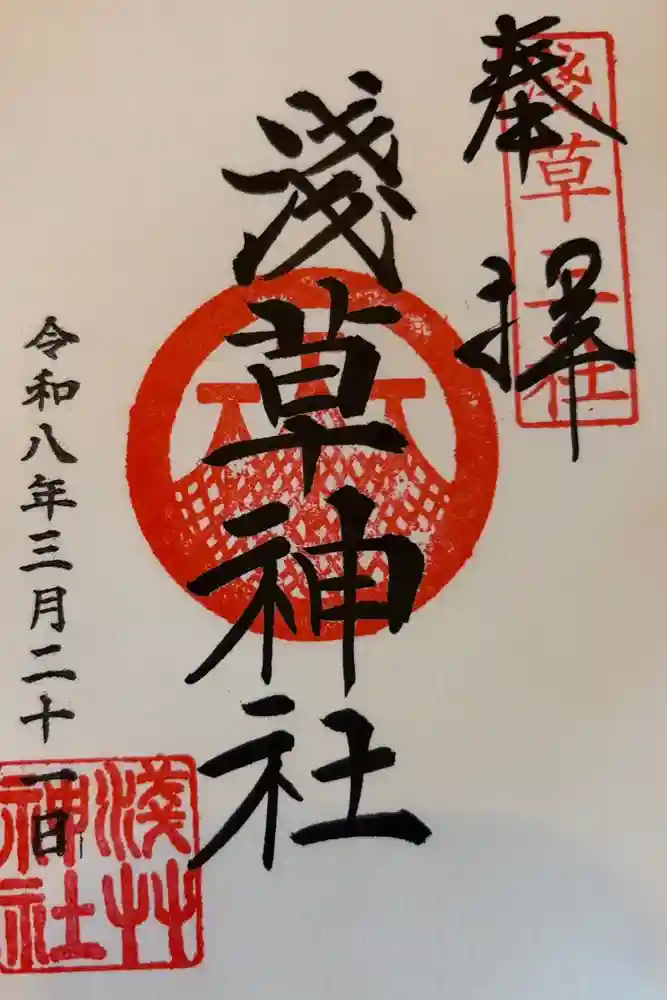 奉拝
淺草三社
淺草神社
令和八年三月二十一日
淺草神社